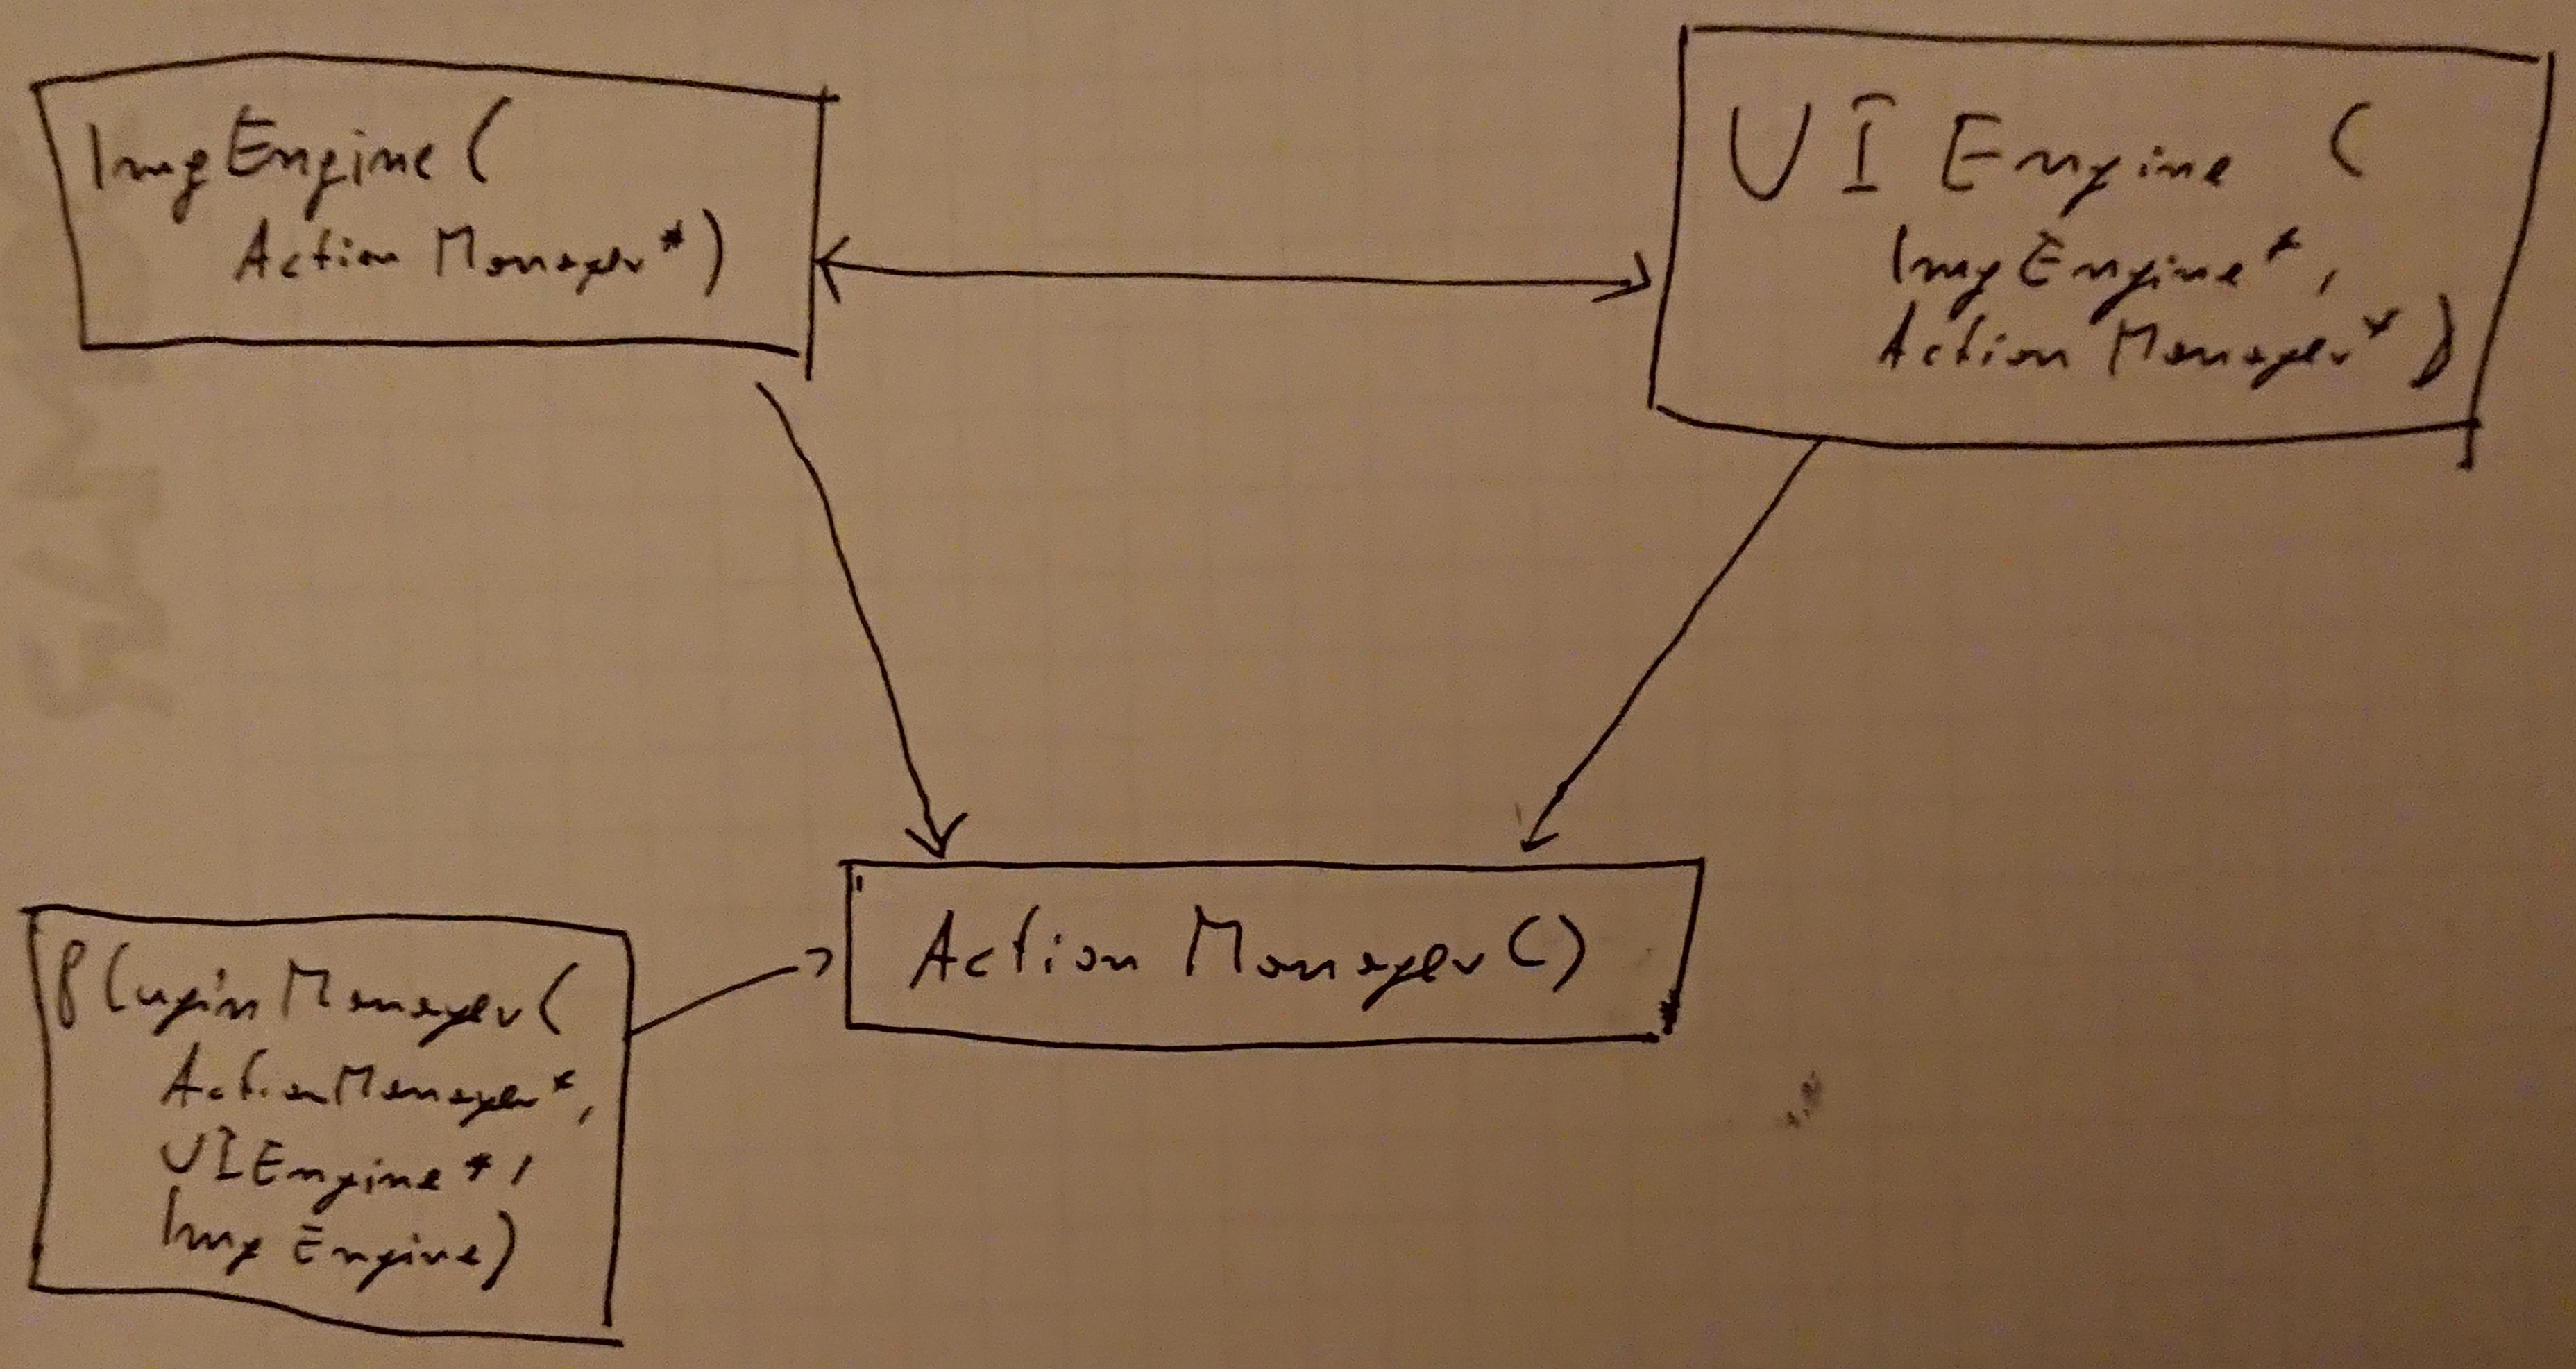 ImgEngine(
ActionManager*)
UI Engine (
ImgEngine*,
ActionManager*)
ActionManager()
PluginManager(
ActionManager*,
UIEngine*,
ImgEngine)